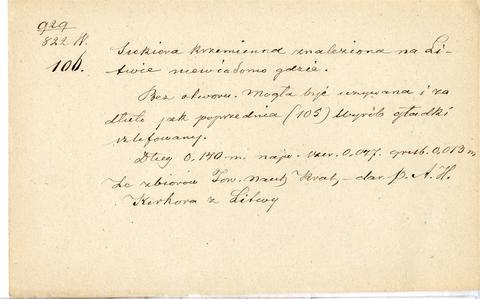 929
822 K.
106.
Siekiera krzemienna znaleziona na Li-
twie niewiadomo gdzie.
Bez otworu. Mogła być używana i za
dłuto jak poprzednia (105) Wyrób gładki
szlifowany.
Dług 0,140 m. najw. szer. 0,047. grub. 0,013 m,
Ze zbiorów Tow. nauk. Krak. – dar p. A. H.
Kirkora z Litwy